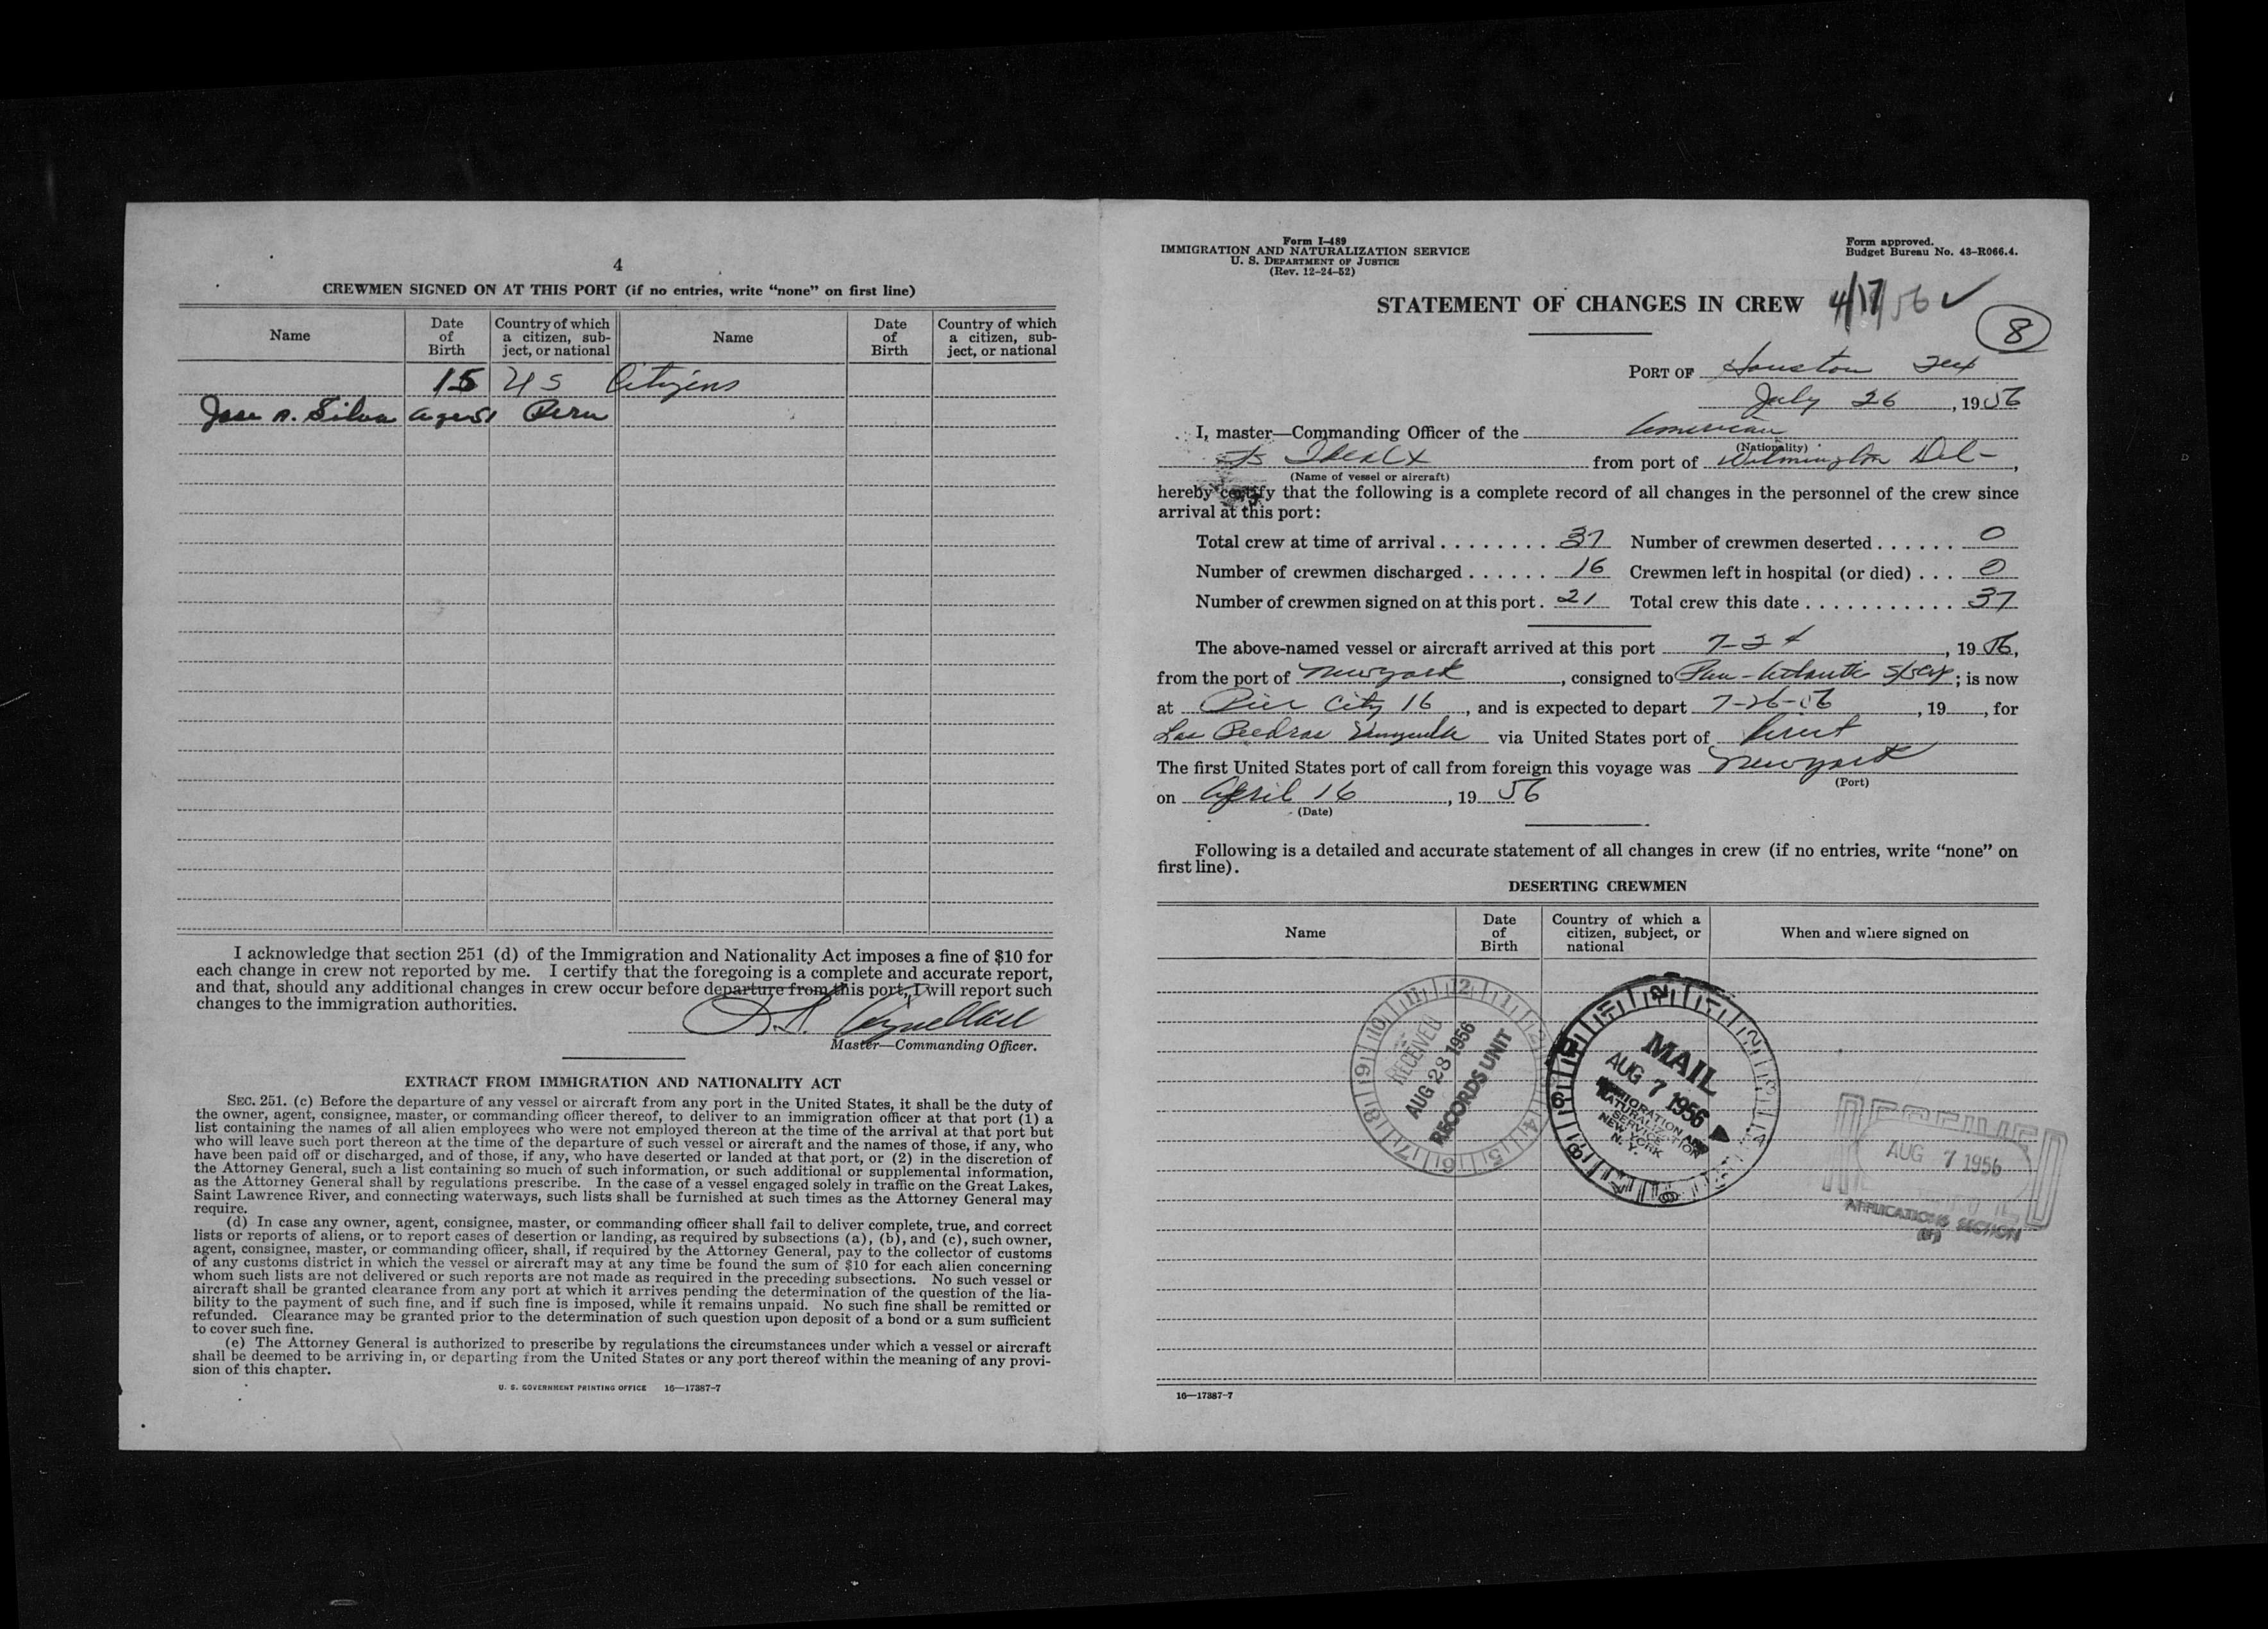 4
CREWMEN SIGNED ON AT THIS PORT (if no entries, write “none” on first line)
Name
Date of Birth
Country of which a citizen, subject, or national
Name
Date of Birth
Country of which a citizen, subject, or national
15 US Citizens
Jose A. Silva age 51 Peru
I acknowledge that section 251 (d) of the Immigration and Nationality Act imposes a fine of $10 for
each change in crew not reported by me. I certify that the foregoing is a complete and accurate report,
and that, should any additional changes in crew occur before departure from this port, I will report such
changes to the immigration authorities.
Master—Commanding Officer.
EXTRACT FROM IMMIGRATION AND NATIONALITY ACT
SEC. 251. (c) Before the departure of any vessel or aircraft from any port in the United States, it shall be the duty of
the owner, agent, consignee, master, or commanding officer thereof, to deliver to an immigration officer at that port (1) a
list containing the names of all alien employees who were not employed thereon at the time of the arrival at that port but
who will leave such port thereon at the time of the departure of such vessel or aircraft and the names of those, if any, who
have been paid off or discharged, and of those, if any, who have deserted or landed at that port, or (2) in the discretion of
the Attorney General, such a list containing so much of such information, or such additional or supplemental information,
as the Attorney General shall by regulations prescribe. In the case of a vessel engaged solely in traffic on the Great Lakes,
Saint Lawrence River, and connecting waterways, such lists shall be furnished at such times as the Attorney General may
require.
(d) In case any owner, agent, consignee, master, or commanding officer shall fail to deliver complete, true, and correct
lists or reports of aliens, or to report cases of desertion or landing, as required by subsections (a), (b), and (c), such owner,
agent, consignee, master, or commanding officer, shall, if required by the Attorney General, pay to the collector of customs
of any customs district in which the vessel or aircraft may at any time be found the sum of $10 for each alien concerning
whom such lists are not delivered or such reports are not made as required in the preceding subsections. No such vessel or
aircraft shall be granted clearance from any port at which it arrives pending the determination of the question of the lia-
bility to the payment of such fine, and if such fine is imposed, while it remains unpaid. No such fine shall be remitted or
refunded. Clearance may be granted prior to the determination of such question upon deposit of a bond or a sum sufficient
to cover such fine.
(e) The Attorney General is authorized to prescribe by regulations the circumstances under which a vessel or aircraft
shall be deemed to be arriving in, or departing from the United States or any port thereof within the meaning of any provi-
sion of this chapter.
U. S. GOVERNMENT PRINTING OFFICE 16—17387-7
Form I-489
IMMIGRATION AND NATURALIZATION SERVICE
U. S. DEPARTMENT OF JUSTICE
(Rev. 12-24-52)
Form approved.
Budget Bureau No. 43-R066.4.
STATEMENT OF CHANGES IN CREW 4/17/56 ✓
8
PORT OF Houston Tex
July 26, 1956
I, master—Commanding Officer of the American
(Nationality)
SS Ideal X from port of Wilmington Del-,
(Name of vessel or aircraft)
hereby certify that the following is a complete record of all changes in the personnel of the crew since
arrival at this port:
Total crew at time of arrival . . . . . . . . 37 Number of crewmen deserted . . . . . . 0
Number of crewmen discharged . . . . . . 16 Crewmen left in hospital (or died) . . . 0
Number of crewmen signed on at this port . 21 Total crew this date . . . . . . . . . . . . 37
The above-named vessel or aircraft arrived at this port 7-24, 1956,
from the port of New york, consigned to Pan-Atlantic; is now
at Pier City 16, and is expected to depart 7-26-56, 19 , for
Las Piedras Venzuela via United States port of direct
The first United States port of call from foreign this voyage was New york
(Port)
on April 16, 19 56
(Date)
Following is a detailed and accurate statement of all changes in crew (if no entries, write “none” on
first line).
DESERTING CREWMEN
Name
Date of Birth
Country of which a citizen, subject, or national
When and where signed on
RECEIVED
AUG 28 1956
RECORDS UNIT
MAIL
AUG 7 1956
IMMIGRATION AND
NATURALIZATION
SERVICE
NEW YORK
N. Y.
AUG 7 1956
APPLICATIONS SECTION
16—17387-7